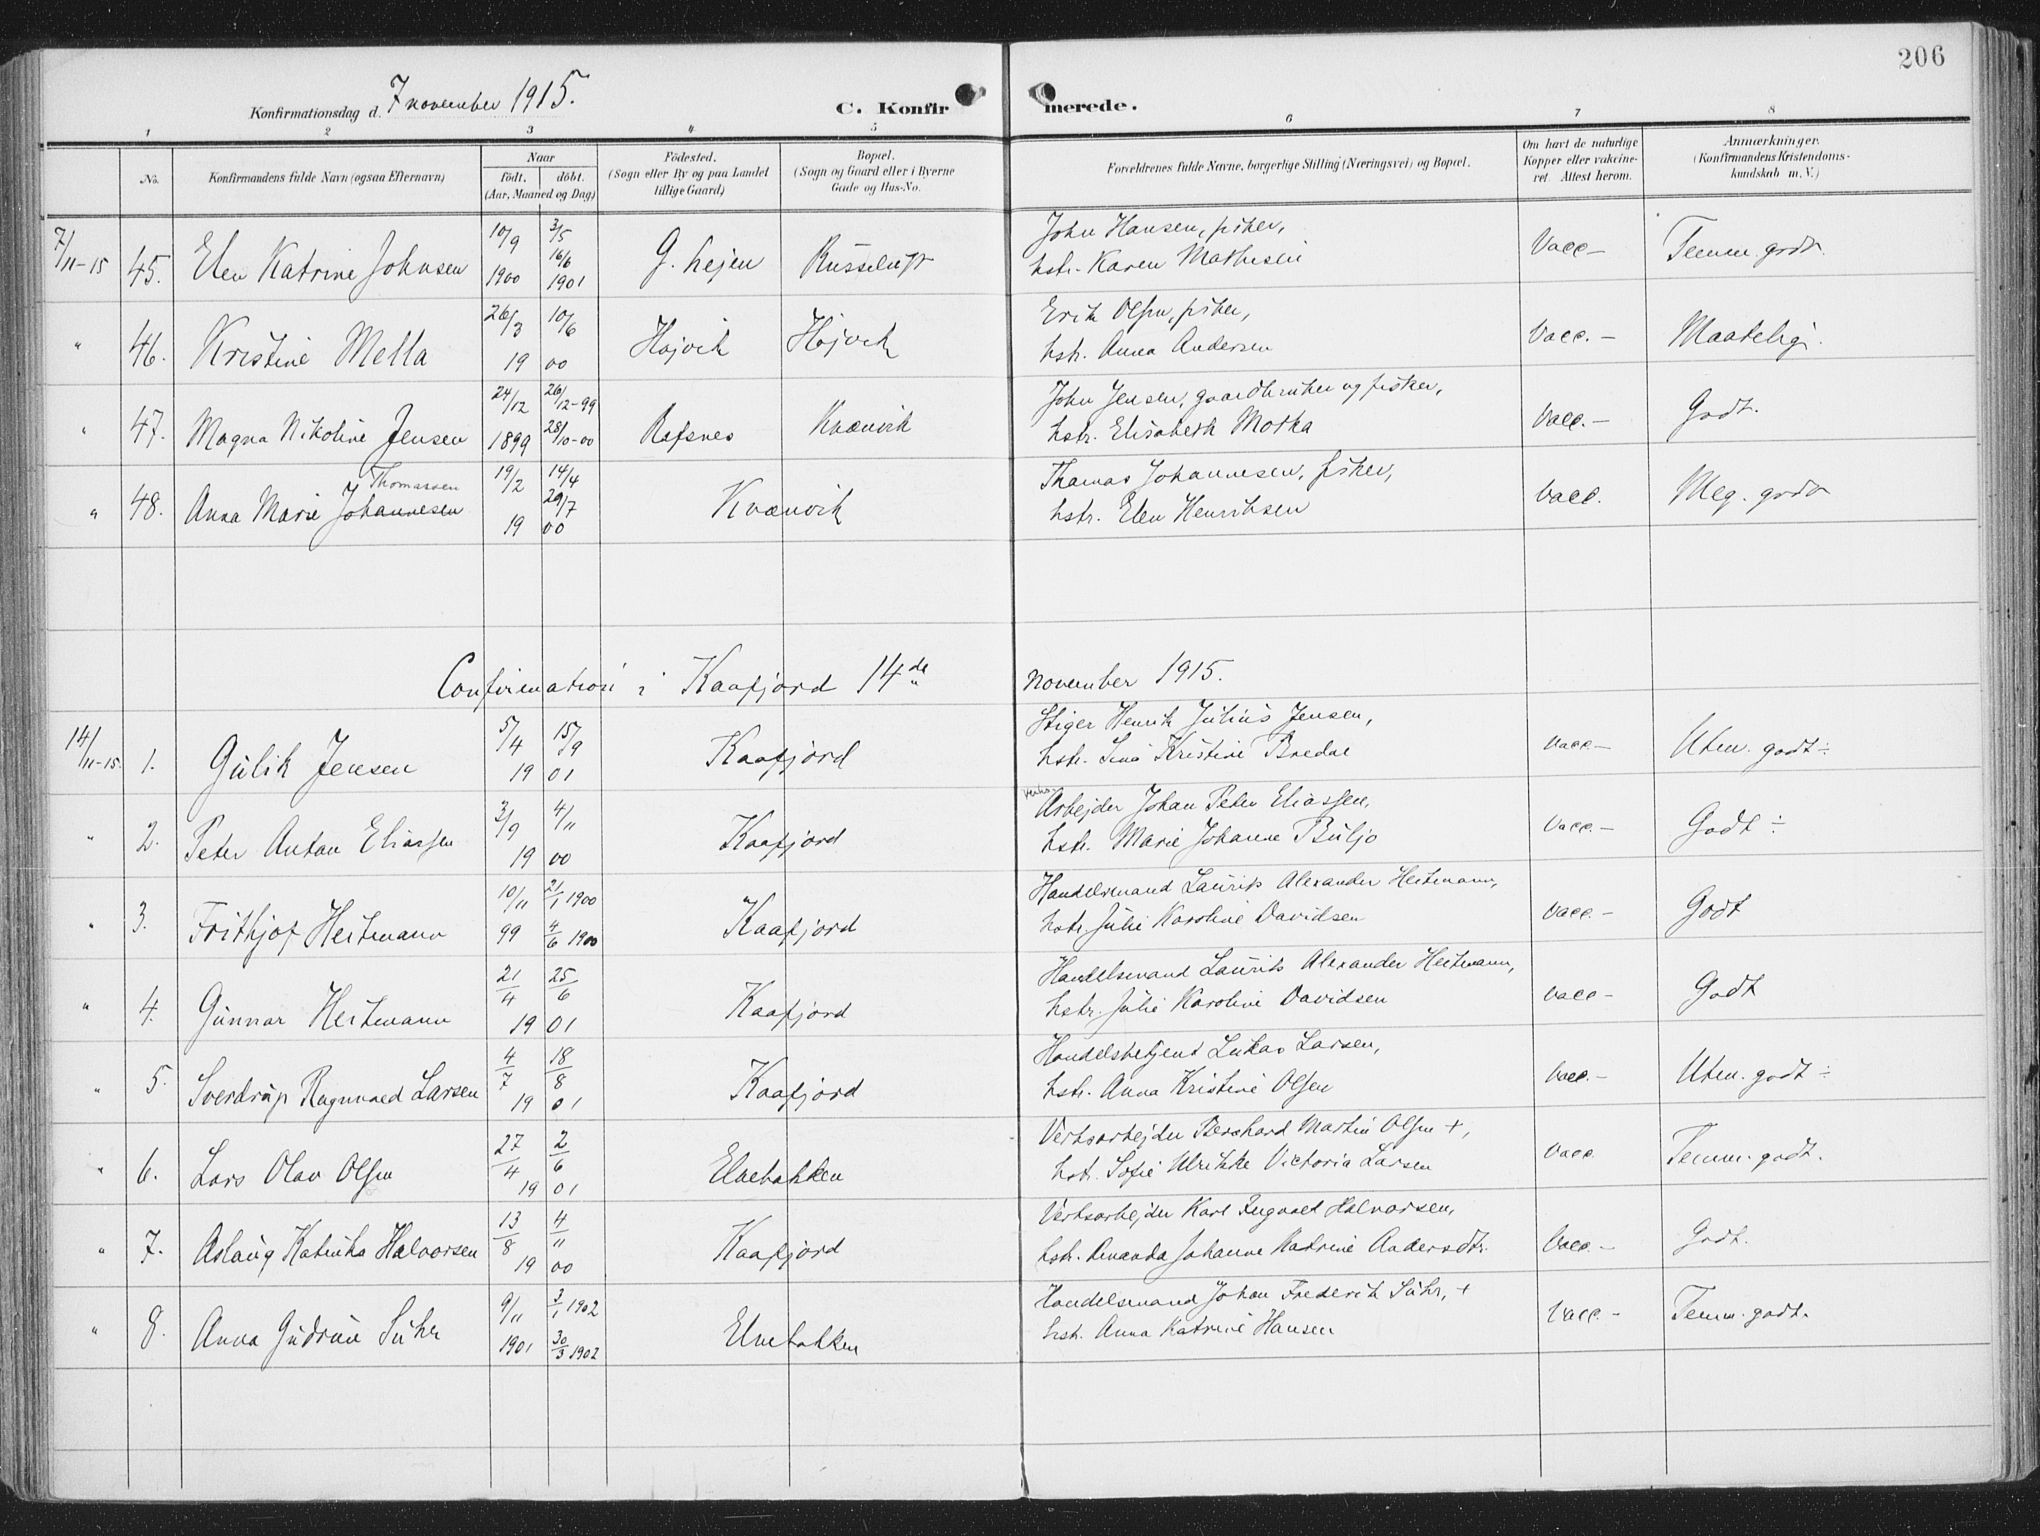 206
Konfirmationsdag d. 7 november 1915.
C. Konfirmerede.
1 2 3 4 5 6 7 8
No.
Konfirmandens fulde Navn (ogsaa Efternavn)
Naar
födt. döbt.
(Aar, Maaned og Dag)
Födested.
(Sogn eller By og paa Landet
tillige Gaard)
Bopæl.
(Sogn og Gaard eller i Byerne
Gade og Hus-No.
Forældrenes fulde Navne, borgerlige Stilling (Næringsvei) og Bopæl.
Om havt de naturlige
Kopper eller vakcine-
ret. Attest herom.
Anmærkninger.
(Konfirmandens Kristendoms-
kundskab m. V.)
7/11-15 45. Elen Katrine Johnsen 10/9 1900 3/5 16/6 1901 G. hejen Russeluft John Hansen, fisker, hstr. Karen Mathesen Vacc- Temm. godt.
" 46. Kristine Mella 26/3 10/6 1900 Højvik Højvik Erik Olsen, fisker, hstr. Anna Andersen Vacc.- Maadelig.
" 47. Magna Nikoline Jensen 24/12 1899 26/12-99 28/10-00 Rafsnes Kvænvik John Jensen, gaardbruker og fisker, hstr. Elisabeth Motka Vacc.- Godt.
" 48. Anna Marie Johannesen Thomassen 19/2 14/4 29/7 1900 Kvænvik Thomas Johannesen, fisker, hstr. Elen Henriksen Vacc. Meg. godt
Confirmation i Kaafjord 14de november 1915.
14/11-15. 1. Gulik Jensen 5/4 15/9 1901 Kaafjord Stiger Henrik Julius Jensen, hstr. Lina Kristine Bredal Vacc- Utm. godt ÷
" 2. Peter Anton Eliassen 3/9 4/11 1900 Kaafjord Verks-Arbejder Johan Peter Eliassen, hstr. Marie Johanne Buljo Vacc.- Godt ÷
" 3. Frithjof Heitmann 10/11 99 21/1 1900 4/6 1900 Kaafjord Handelsmand Laurits Alexander Heitmann, hstr. Julie Karoline Davidsen Vacc.- Godt
" 4. Gunnar Heitmann 21/4 25/6 1901 Kaafjord Handelsmand Laurits Alexander Heitmann, hstr. Julie Karoline Davidsen Vacc- Godt
" 5. Sverdrup Ragnvald Larsen 4/7 18/8 1901 Kaafjord Handelsbetjent Lukas Larsen, hstr. Anna Kristine Olsen Vacc.- Utm. godt ÷
" 6. Lars Olav Olsen 27/4 2/6 1901 Elvebakken Verksarbejder Bernhard Martin Olsen +, hstr. Sofie Ulrikke Victoria Larsen Vacc Temm. godt.
" 7. Aslaug Katinka Halvorsen 13/8 4/11 1900 Kaafjord Verksarbejder Karl Ingvald Halvorsen, hstr. Amanda Johanne Katrine Andersdtr. Vacc.- Godt.
" 8. Anna Gudrun Suhr 9/11 1901 3/1 1902 30/3 1902 Elvebakken Handelsmand Johan Frederik Suhr, + hstr. Anna Katrine Hansen Vacc.- Temm. godt.